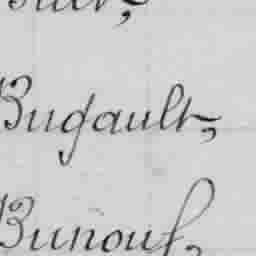 Bugault,
Bunouf,